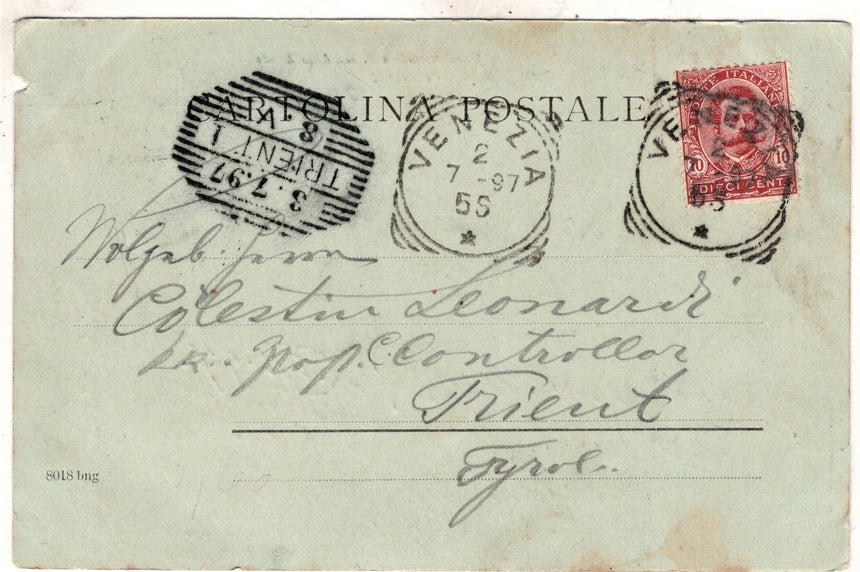 CARTOLINA POSTALE
POSTE ITALIANE
10 10
DIECI CENT
VENEZIA
2
7 -97
5S
VENEZIA
2
7 -97
5S
3.7.97
TRIENT 1
8
V
Wolgeb. Herrn
Cölestin Leonardi
k.k. Post C. Controllor
Trient
Tyrol.
8018 bng